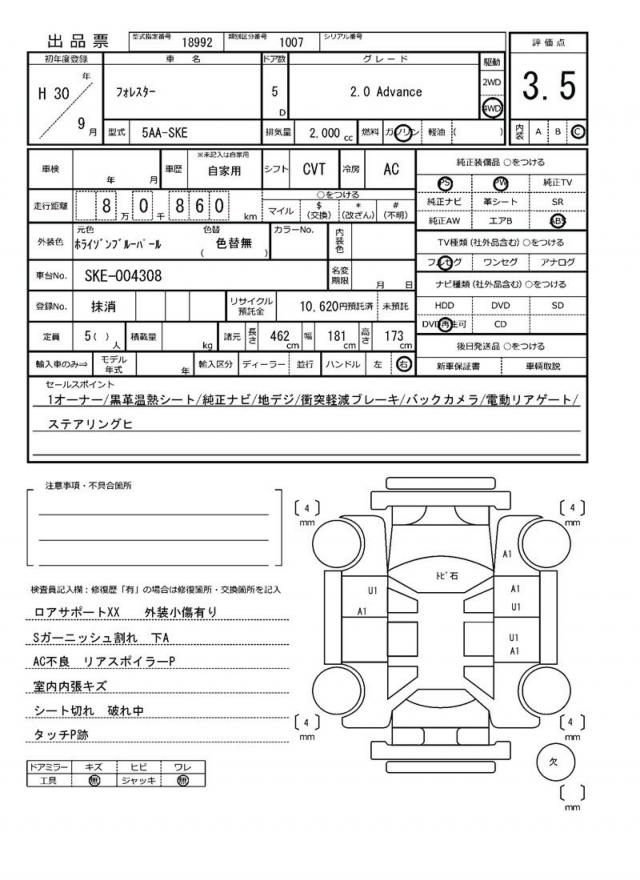 出品票 型式指定番号 18992 類別区分番号 1007 シリアル番号
初年度登録 車 名 ドア数 グレード 駆動 評価点
H 30 年 9 月 フォレスター 5 D 2.0 Advance 2WD 4WD 3.5
型式 5AA-SKE 排気量 2,000 cc 燃料 ガソリン 軽油 ( ) 内装 A B C
車検 年 月 車歴 ※未記入は自家用 自家用 シフト CVT 冷房 AC 純正装備品 ○をつける
PS PW 純正TV
走行距離 8 万 0 千 860 km ○をつける
マイル $ (交換) * (改ざん) # (不明)
純正ナビ 革シート SR
純正AW エアB ABS
外装色 元色 ホライゾンブルーパール 色替 ( 色替無 ) カラーNo. 内装色
TV種類 (社外品含む) ○をつける
フルセグ ワンセグ アナログ
車台No. SKE-004308 名変期限 月 日
ナビ種類 (社外品含む) ○をつける
登録No. 抹消 リサイクル預託金 10,620円預託済 未預託
HDD DVD SD
DVD再生可 CD
定員 5( ) 人 積載量 kg 諸元 長さ 462 cm 幅 181 cm 高さ 173 cm
後日発送品 ○をつける
輸入車のみ⇒ モデル年式 年 輸入区分 ディーラー 並行 ハンドル 左 右
新車保証書 車輌取説
セールスポイント
1オーナー/黒革温熱シート/純正ナビ/地デジ/衝突軽減ブレーキ/バックカメラ/電動リアゲート/
ステアリングヒ
注意事項・不具合箇所
検査員記入欄：修復歴「有」の場合は修復箇所・交換箇所を記入
ロアサポートXX 外装小傷有り
Sガーニッシュ割れ 下A
AC不良 リアスポイラーP
室内内張キズ
シート切れ 破れ中
タッチP跡
ドアミラー キズ ヒビ ワレ
工具 無 ジャッキ 無
4 mm
4 mm
A1
トビ石
U1
A1
A1
U1
U1
A1
4 mm
4 mm
欠
mm